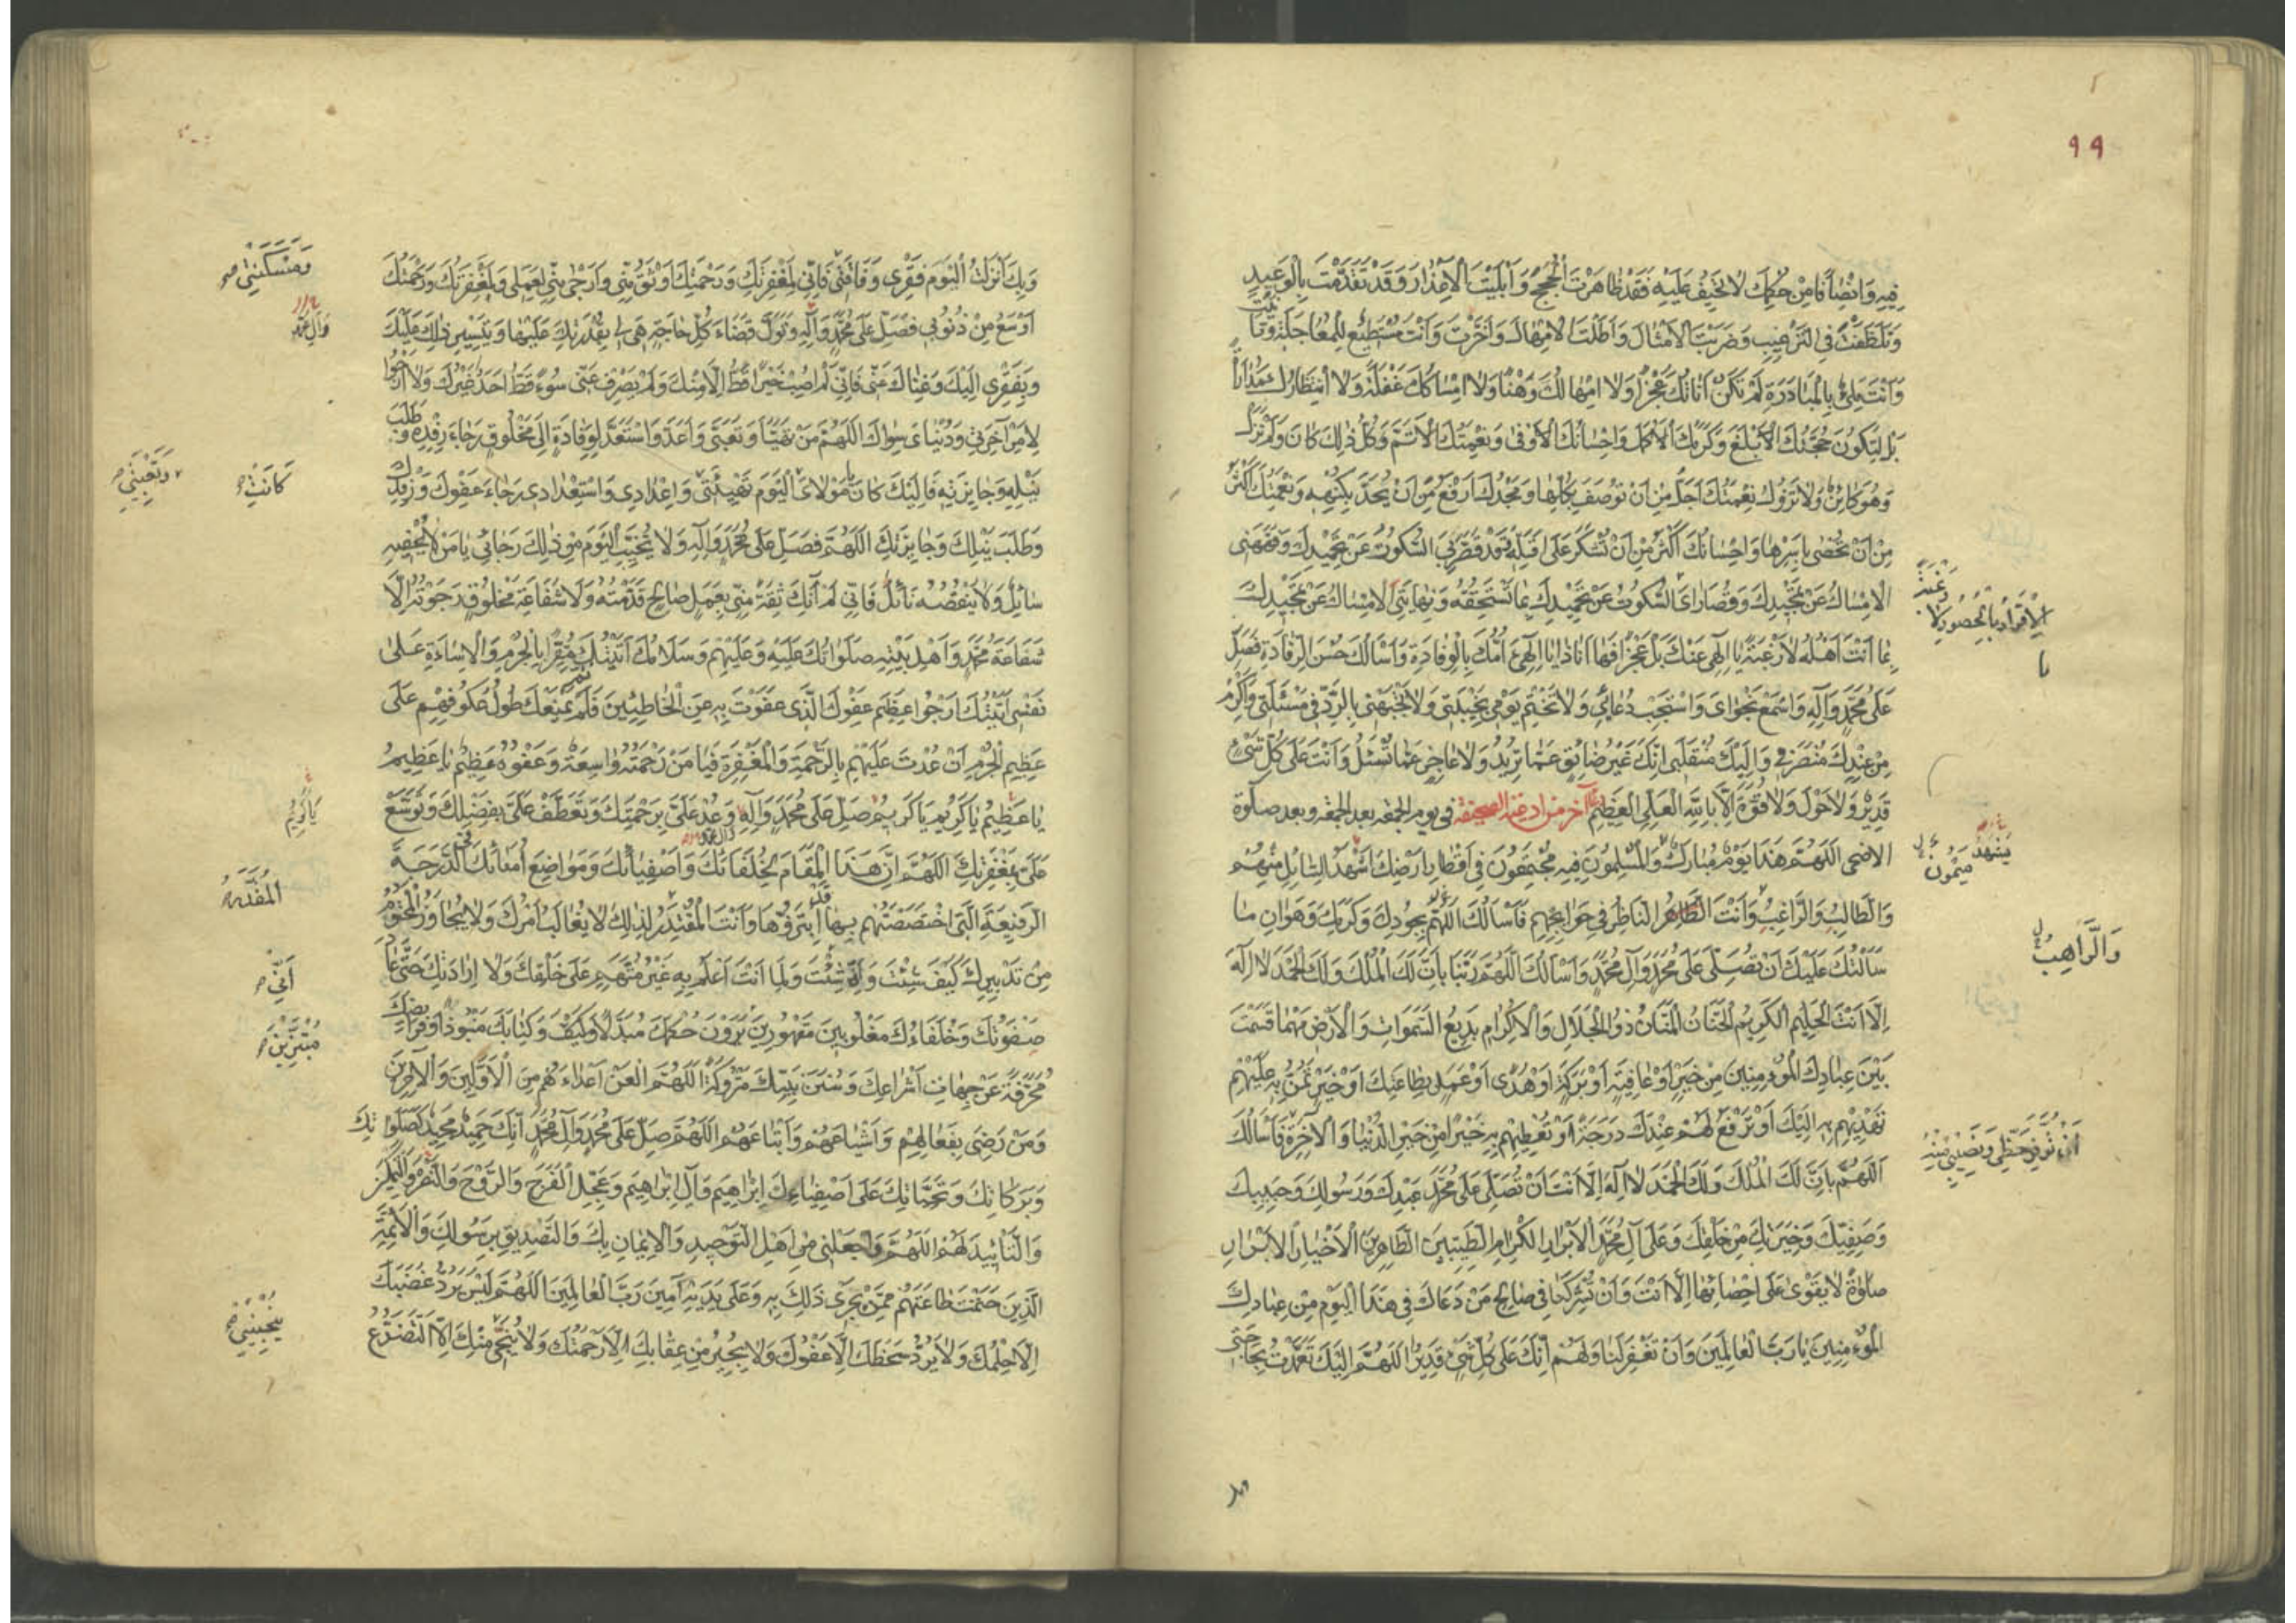 ٩٩
فِيهِ وَانْصَافًا مِنْ حُكْمِكَ لَا تَحِيفُ عَلَيْهِ فَقَدْ ظَاهَرْتَ الْحُجَجَ وَأَبْلَيْتَ الْأَعْذَارَ وَقَدْ تَقَدَّمْتَ بِالْوَعِيدِ
وَتَلَطَّفْتَ فِي التَّرْغِيبِ وَضَرَبْتَ الْأَمْثَالَ وَأَطَلْتَ الْإِمْهَالَ وَأَخَّرْتَ وَأَنْتَ مُسْتَطِيعٌ لِلْمُعَاجَلَةِ وَتَأَنَّيْتَ
وَأَنْتَ مَلِيءٌ بِالْمُبَادَرَةِ لَمْ تَكُنْ أَنَاتُكَ عَجْزًا وَلَا إِمْهَالُكَ وَهْنًا وَلَا إِمْسَاكُكَ غَفْلَةً وَلَا انْتِظَارُكَ مُدَارَاةً
بَلْ لِتَكُونَ حُجَّتُكَ الْأَبْلَغَ وَكَرَمُكَ الْأَكْمَلَ وَإِحْسَانُكَ الْأَوْفَى وَنِعْمَتُكَ الْأَتَمَّ وَكُلُّ ذَلِكَ كَانَ وَلَمْ تَزَلْ
وَهُوَ كَائِنٌ وَلَا تَزُولُ نِعْمَتُكَ أَجَلُّ مِنْ أَنْ تُوصَفَ بِكُلِّهَا وَمَجْدُكَ أَرْفَعُ مِنْ أَنْ يُحَدَّ بِكُنْهِهِ وَنِعْمَتُكَ أَكْثَرُ
مِنْ أَنْ تُحْصَى بِأَسْرِهَا وَإِحْسَانُكَ أَكْثَرُ مِنْ أَنْ تُشْكَرَ عَلَى أَقَلِّهِ وَقَدْ قَصَّرَ بِيَ السُّكُوتُ عَنْ تَحْمِيدِكَ وَفَهَّهَنِي
الْإِمْسَاكُ عَنْ تَمْجِيدِكَ وَقُصَارَايَ السُّكُوتُ عَنْ تَحْمِيدِكَ بِمَا تَسْتَحِقُّهُ وَنِهَايَتِي الْإِمْسَاكُ عَنْ تَمْجِيدِكَ
بِمَا أَنْتَ أَهْلُهُ لَا رَغْبَةً يَا إِلَهِي عَنْكَ بَلْ عَجْزًا فَهَا أَنَا ذَا يَا إِلَهِي أَؤُمُّكَ بِالْوِفَادَةِ وَأَسْأَلُكَ حُسْنَ الرِّفَادَةِ فَصَلِّ
عَلَى مُحَمَّدٍ وَآلِهِ وَاسْمَعْ نَجْوَايَ وَاسْتَجِبْ دُعَائِي وَلَا تَخْتِمْ يَوْمِي بِخَيْبَتِي وَلَا تَجْبَهْنِي بِالرَّدِّ فِي مَسْئَلَتِي وَأَكْرِمْ
مِنْ عِنْدِكَ مُنْصَرَفِي وَإِلَيْكَ مُنْقَلَبِي إِنَّكَ غَيْرُ ضَائِقٍ عَمَّا تُرِيدُ وَلَا عَاجِزٍ عَمَّا تُسْئَلُ وَأَنْتَ عَلَى كُلِّ شَيْءٍ
قَدِيرٌ وَلَا حَوْلَ وَلَا قُوَّةَ إِلَّا بِاللَّهِ الْعَلِيِّ الْعَظِيمِ آخر من ادعية الصحيفة في يوم الجمعة بعد الجمعة وبعد صلوة
الاضحى اللَّهُمَّ هَذَا يَوْمٌ مُبَارَكٌ وَالْمُسْلِمُونَ فِيهِ مُجْتَمِعُونَ فِي أَقْطَارِ أَرْضِكَ أَشْهَدُ السَّائِلَ مِنْهُمْ
وَالطَّالِبَ وَالرَّاغِبَ وَأَنْتَ النَّاظِرُ فِي حَوَائِجِهِمْ فَأَسْأَلُكَ اللَّهُمَّ بِجُودِكَ وَكَرَمِكَ وَهَوَانِ مَا
سَأَلْتُكَ عَلَيْكَ أَنْ تُصَلِّيَ عَلَى مُحَمَّدٍ وَآلِ مُحَمَّدٍ وَأَسْأَلُكَ اللَّهُمَّ رَبَّنَا بِأَنَّ لَكَ الْمُلْكَ وَلَكَ الْحَمْدَ لَا إِلَهَ
إِلَّا أَنْتَ الْحَلِيمُ الْكَرِيمُ الْحَنَّانُ الْمَنَّانُ ذُو الْجَلَالِ وَالْإِكْرَامِ بَدِيعُ السَّمَوَاتِ وَالْأَرْضِ مَهْمَا قَسَمْتَ
بَيْنَ عِبَادِكَ الْمُؤْمِنِينَ مِنْ خَيْرٍ أَوْ عَافِيَةٍ أَوْ بَرَكَةٍ أَوْ هُدًى أَوْ عَمَلٍ بِطَاعَتِكَ أَوْ خَيْرٍ تَمُنُّ بِهِ عَلَيْهِمْ
تَهْدِيهِمْ بِهِ إِلَيْكَ أَوْ تَرْفَعُ لَهُمْ عِنْدَكَ دَرَجَةً أَوْ تُعْطِيهِمْ بِهِ خَيْرًا مِنْ خَيْرِ الدُّنْيَا وَالْآخِرَةِ فَأَسْأَلُكَ
اللَّهُمَّ بِأَنَّ لَكَ الْمُلْكَ وَلَكَ الْحَمْدَ لَا إِلَهَ إِلَّا أَنْتَ أَنْ تُصَلِّيَ عَلَى مُحَمَّدٍ عَبْدِكَ وَرَسُولِكَ وَحَبِيبِكَ
وَصَفِيِّكَ وَخِيَرَتِكَ مِنْ خَلْقِكَ وَعَلَى آلِ مُحَمَّدٍ الْأَبْرَارِ الْكِرَامِ الطَّيِّبِينَ الطَّاهِرِينَ الْأَخْيَارِ الْأَبْرَارِ
صَلَوةً لَا يَقْوَى عَلَى إِحْصَائِهَا إِلَّا أَنْتَ وَأَنْ تُشْرِكَنَا فِي صَالِحِ مَنْ دَعَاكَ فِي هَذَا الْيَوْمِ مِنْ عِبَادِكَ
الْمُؤْمِنِينَ يَا رَبَّ الْعَالَمِينَ وَأَنْ تَغْفِرَ لَنَا وَلَهُمْ إِنَّكَ عَلَى كُلِّ شَيْءٍ قَدِيرٌ اللَّهُمَّ إِلَيْكَ تَعَمَّدْتُ بِحَاجَتِي
رَغْبَةً
الْإِقْرَارُ بِالْحُسُورِ لَا
يَا
يَشْهَدُ
مَيْمُونٌ
وَالرَّاهِبُ
أَنْ تُوَفِّرَ حَظِّي وَنَصِيبِي مِنْهُ
وبك
وَبِكَ أَنْزَلْتُ الْيَوْمَ فَقْرِي وَفَاقَتِي فَإِنِّي لِمَغْفِرَتِكَ وَرَحْمَتِكَ أَوْثَقُ مِنِّي وَأَرْجَى مِنِّي لِعَمَلِي وَلَمَغْفِرَتُكَ وَرَحْمَتُكَ
أَوْسَعُ مِنْ ذُنُوبِي فَصَلِّ عَلَى مُحَمَّدٍ وَآلِهِ وَتَوَلَّ قَضَاءَ كُلِّ حَاجَةٍ هِيَ لِي بِقُدْرَتِكَ عَلَيْهَا وَتَيْسِيرِ ذَلِكَ عَلَيْكَ
وَبِفَقْرِي إِلَيْكَ وَغِنَاكَ عَنِّي فَإِنِّي لَمْ أُصِبْ خَيْرًا قَطُّ إِلَّا مِنْكَ وَلَمْ يَصْرِفْ عَنِّي سُوءً قَطُّ أَحَدٌ غَيْرُكَ وَلَا أَرْجُوا
لِأَمْرِ آخِرَتِي وَدُنْيَايَ سِوَاكَ اللَّهُمَّ مَنْ تَهَيَّأَ وَتَعَبَّى وَأَعَدَّ وَاسْتَعَدَّ لِوِفَادَةٍ إِلَى مَخْلُوقٍ رَجَاءَ رِفْدِهِ وَطَلَبَ
نَيْلِهِ وَجَائِزَتِهِ فَإِلَيْكَ كَانَ يَا مَوْلَايَ الْيَوْمَ تَهْيِئَتِي وَإِعْدَادِي وَاسْتِعْدَادِي رَجَاءَ عَفْوِكَ وَرِفْدِكَ
وَطَلَبَ نَيْلِكَ وَجَائِزَتِكَ اللَّهُمَّ فَصَلِّ عَلَى مُحَمَّدٍ وَآلِهِ وَلَا تُخَيِّبِ الْيَوْمَ مِنْ ذَلِكَ رَجَائِي يَا مَنْ لَا يُحْفِيهِ
سَائِلٌ وَلَا يَنْقُصُهُ نَائِلٌ فَإِنِّي لَمْ آتِكَ ثِقَةً مِنِّي بِعَمَلٍ صَالِحٍ قَدَّمْتُهُ وَلَا شَفَاعَةِ مَخْلُوقٍ رَجَوْتُهُ إِلَّا
شَفَاعَةَ مُحَمَّدٍ وَأَهْلِ بَيْتِهِ صَلَوَاتُكَ عَلَيْهِ وَعَلَيْهِمْ وَسَلَامُكَ أَتَيْتُكَ مُقِرًّا بِالْجُرْمِ وَالْإِسَاءَةِ عَلَى
نَفْسِي أَتَيْتُكَ أَرْجُوا عَظِيمَ عَفْوِكَ الَّذِي عَفَوْتَ بِهِ عَنِ الْخَاطِئِينَ فَلَمْ يَمْنَعْكَ طُولُ عُكُوفِهِمْ عَلَى
عَظِيمِ الْجُرْمِ أَنْ عُدْتَ عَلَيْهِمْ بِالرَّحْمَةِ وَالْمَغْفِرَةِ فَيَا مَنْ رَحْمَتُهُ وَاسِعَةٌ وَعَفْوُهُ عَظِيمٌ يَا عَظِيمُ
يَا عَظِيمُ يَا كَرِيمُ يَا كَرِيمُ صَلِّ عَلَى مُحَمَّدٍ وَآلِهِ وَعُدْ عَلَيَّ بِرَحْمَتِكَ وَتَعَطَّفْ عَلَيَّ بِفَضْلِكَ وَتَوَسَّعْ
عَلَيَّ بِمَغْفِرَتِكَ اللَّهُمَّ إِنَّ هَذَا الْمَقَامَ لِخُلَفَائِكَ وَأَصْفِيَائِكَ وَمَوَاضِعَ أُمَنَائِكَ فِي الدَّرَجَةِ
الرَّفِيعَةِ الَّتِي اخْتَصَصْتَهُمْ بِهَا قَدِ ابْتَزُّوهَا وَأَنْتَ الْمُقْتَدِرُ لِذَلِكَ لَا يُغَالَبُ أَمْرُكَ وَلَا يُجَاوَزُ الْمَحْتُومُ
مِنْ تَدْبِيرِكَ كَيْفَ شِئْتَ وَأَنَّى شِئْتَ وَلِمَا أَنْتَ أَعْلَمُ بِهِ غَيْرُ مُتَّهَمٍ عَلَى خَلْقِكَ وَلَا إِرَادَتِكَ حَتَّى عَادَ
صِفْوَتُكَ وَخُلَفَاءُكَ مَغْلُوبِينَ مَقْهُورِينَ يَرَوْنَ حُكْمَكَ مُبَدَّلًا وَكِتَابَكَ مَنْبُوذًا وَفَرَائِضَكَ
مُحَرَّفَةً عَنْ جِهَاتِ أَشْرَاعِكَ وَسُنَنَ نَبِيِّكَ مَتْرُوكَةً اللَّهُمَّ الْعَنْ أَعْدَاءَهُمْ مِنَ الْأَوَّلِينَ وَالْآخِرِينَ
وَمَنْ رَضِيَ بِفَعَالِهِمْ وَأَشْيَاعَهُمْ وَأَتْبَاعَهُمْ اللَّهُمَّ صَلِّ عَلَى مُحَمَّدٍ وَآلِ مُحَمَّدٍ إِنَّكَ حَمِيدٌ مَجِيدٌ كَصَلَوَاتِكَ
وَبَرَكَاتِكَ وَتَحِيَّاتِكَ عَلَى أَصْفِيَاءِكَ إِبْرَاهِيمَ وَآلِ إِبْرَاهِيمَ وَعَجِّلِ الْفَرَجَ وَالرَّوْحَ وَالنَّصْرَ وَالتَّمْكِينَ
وَالتَّأْيِيدَ لَهُمْ اللَّهُمَّ وَاجْعَلْنِي مِنْ أَهْلِ التَّوْحِيدِ وَالْإِيمَانِ بِكَ وَالتَّصْدِيقِ بِرَسُولِكَ وَالْأَئِمَّةِ
الَّذِينَ حَتَمْتَ طَاعَتَهُمْ مِمَّنْ يَجْرِي ذَلِكَ بِهِ وَعَلَى يَدَيْهِ آمِينَ رَبَّ الْعَالَمِينَ اللَّهُمَّ لَيْسَ يَرُدُّ غَضَبَكَ
إِلَّا حِلْمُكَ وَلَا يَرُدُّ سَخَطَكَ إِلَّا عَفْوُكَ وَلَا يُجِيرُ مِنْ عِقَابِكَ إِلَّا رَحْمَتُكَ وَلَا يُنْجِي مِنْكَ إِلَّا التَّضَرُّعُ
وَمَسْكَنَتِي
وَآلِ مُحَمَّدٍ
كَانَتْ
وَتَعْبِيَتِي
يَا كَرِيمُ
أَنَّى
مُبْتَزِّينَ
يُنْجِينِي